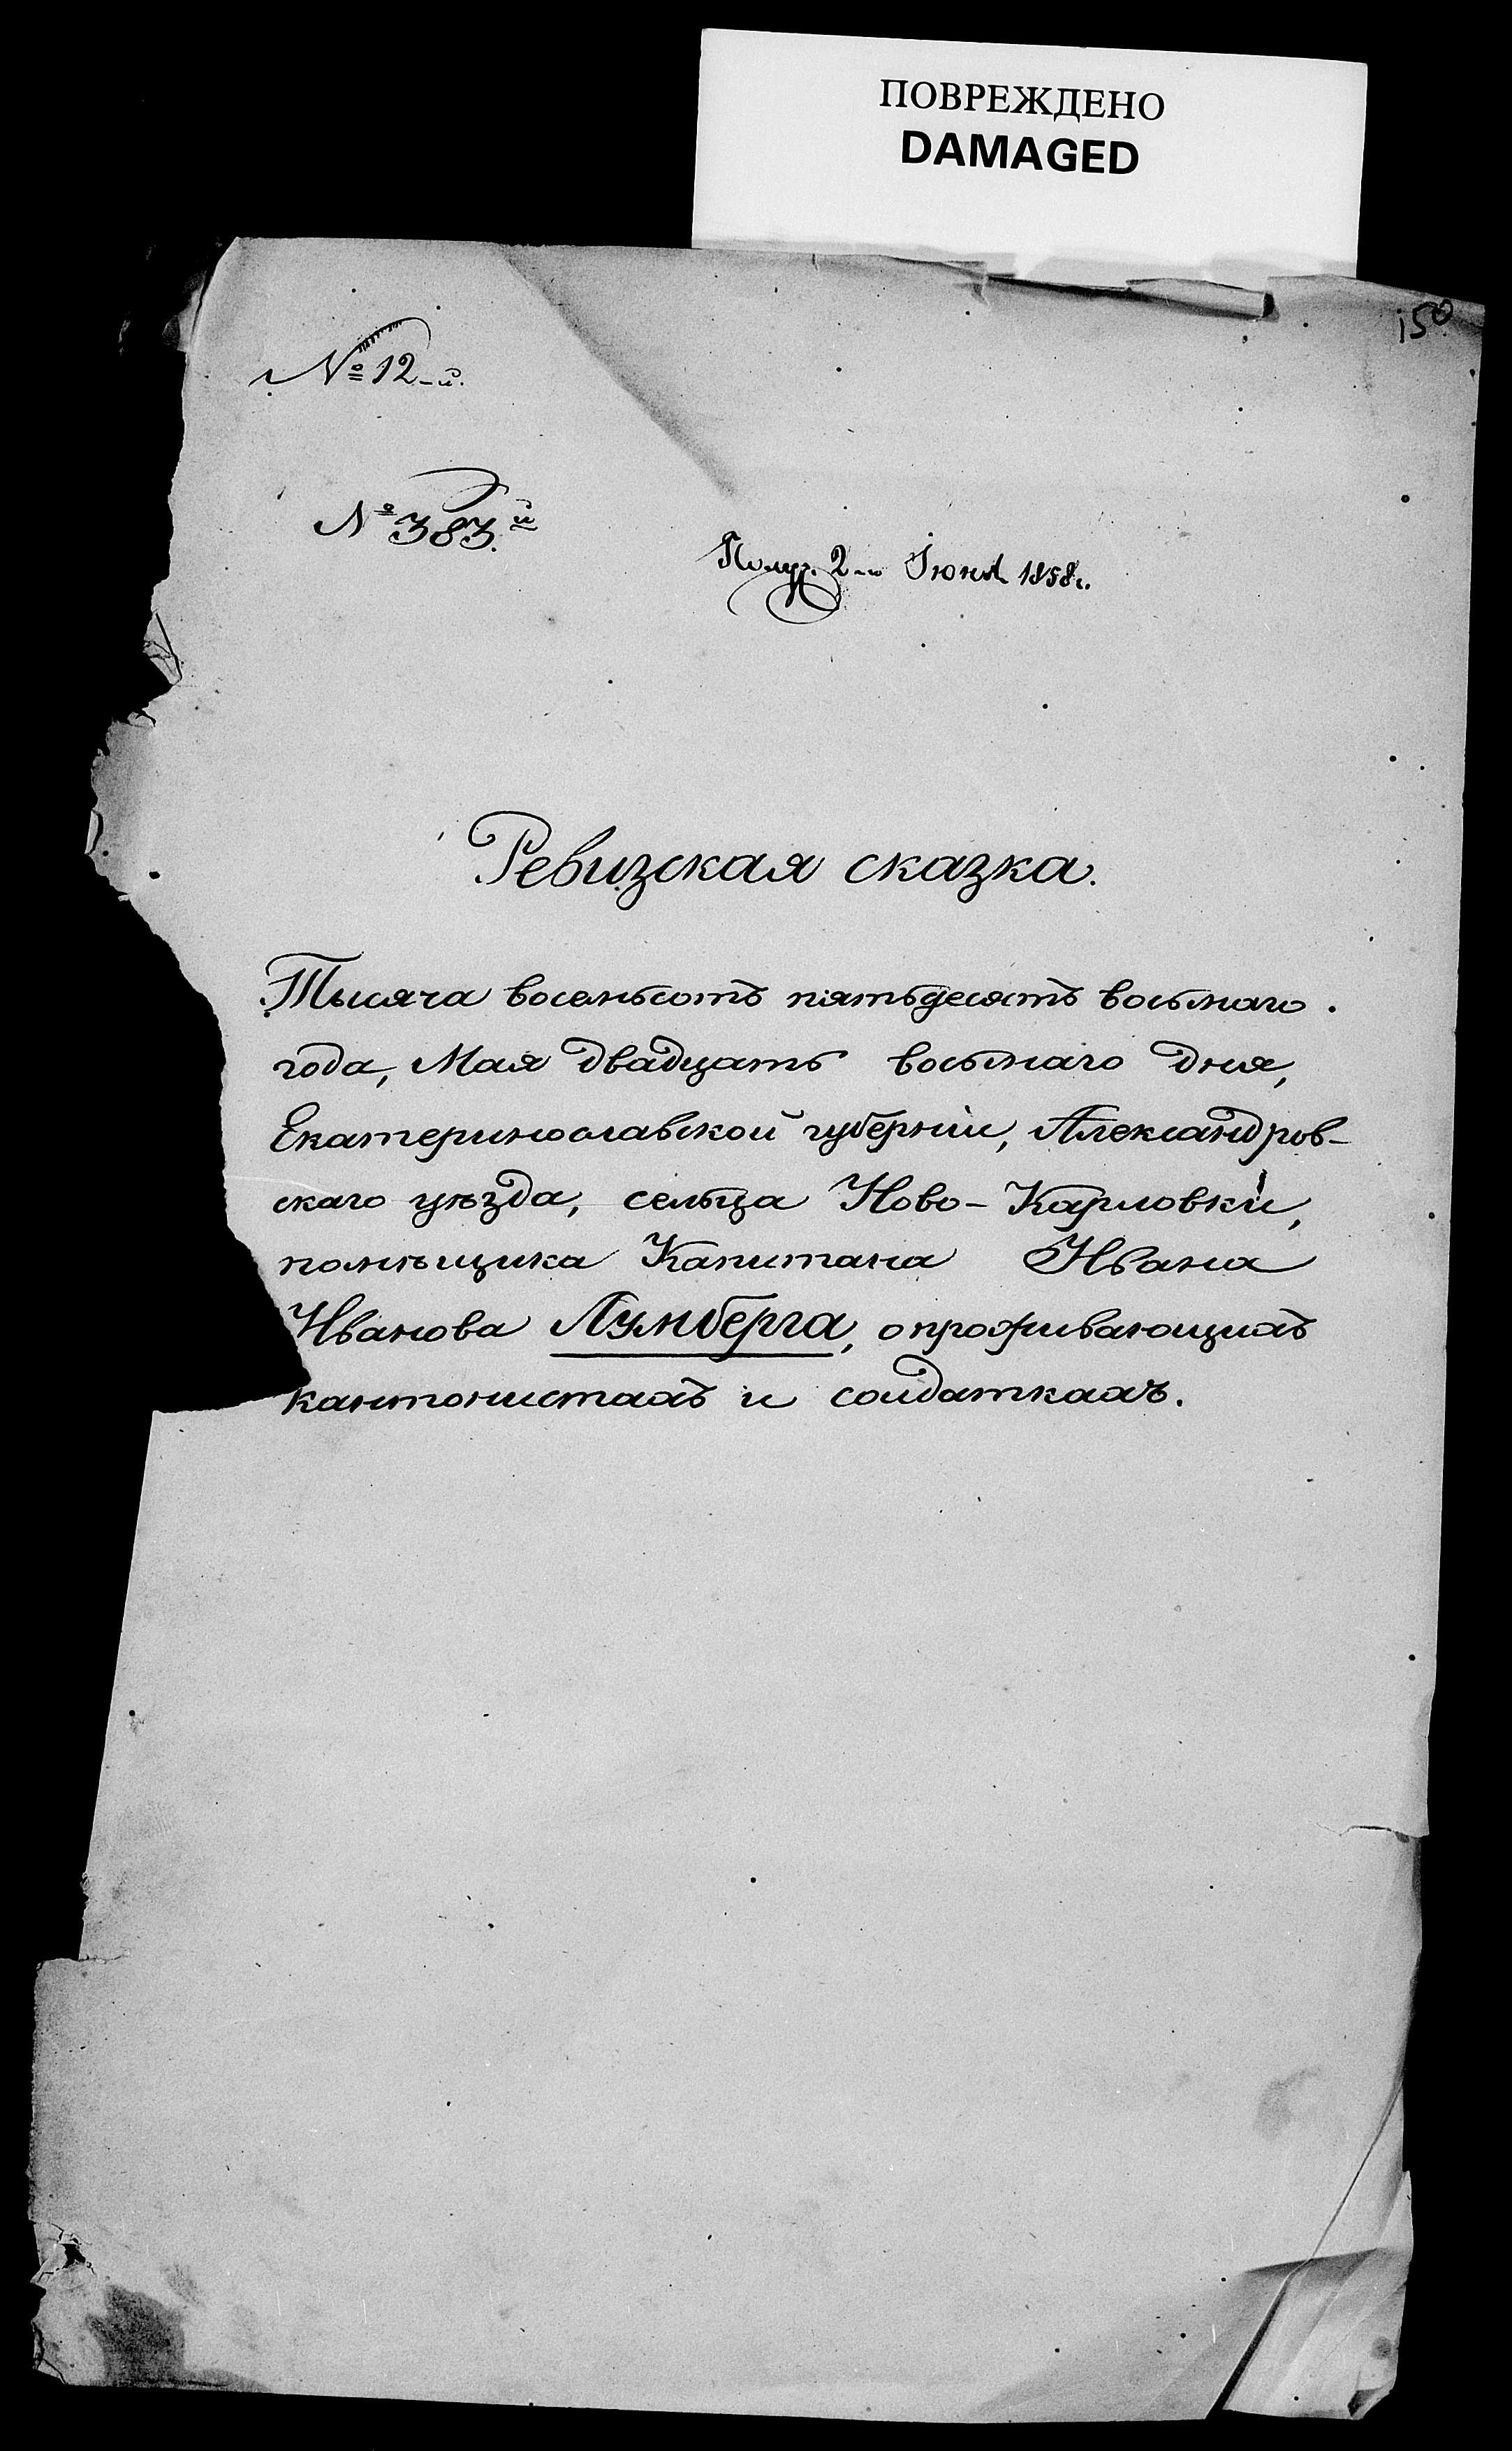 ПОВРЕЖДЕНО
DAMAGED
150
№ 12-й.
№ 383.й
Получ. 2-го Іюня 1858 г.
Ревизская сказка.
Тысяча восемьсотъ пятьдесятъ восьмаго
года, Мая двадцать восьмаго дня,
Екатеринославской губерніи, Александров-
скаго уѣзда, сельца Ново-Карловки,
помѣщика Капитана Ивана
Иванова Лумберга, о проживающихъ
кантонистахъ и солдаткахъ.